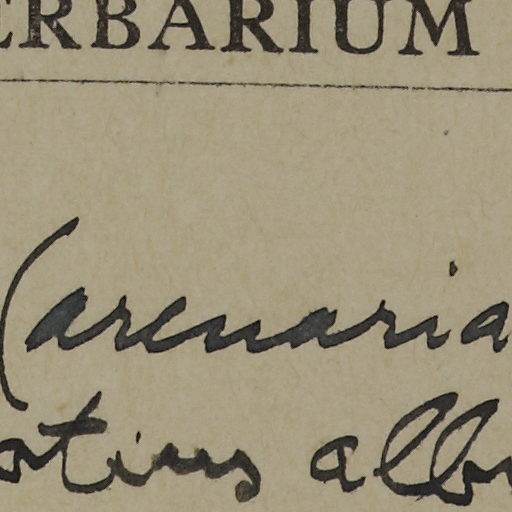 ERBARIUM
(arenaria
otius alb